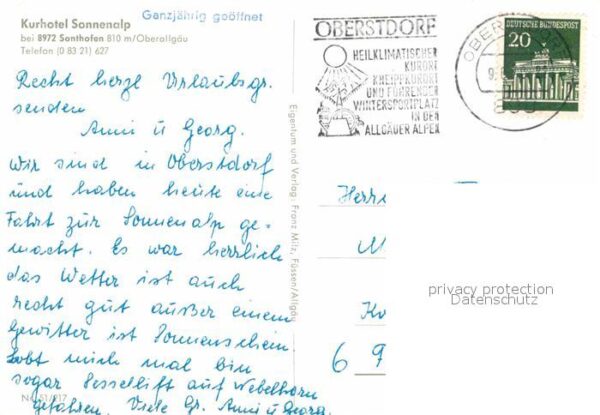 Kurhotel Sonnenalp
bei 8972 Sonthofen 810 m/Oberallgäu
Telefon (0 83 21) 627
Ganzjährig geöffnet
Recht herzl Urlaubsgr.
senden
Anni u Georg.
Wir sind in Oberstdorf
und haben heute eine
Fahrt zur Sonnenalp ge-
macht. Es war herrlich
das Wetter ist auch
recht gut außer einem
Gewitter ist Sonnenschein.
Lobt mich mal bin
sogar Sessellift auf Nebelhorn
gefahren. Viele Gr. Anni u Georg.
51/917
Eigentum und Verlag: Franz Milz, Füssen/Allgäu
OBERSTDORF
HEILKLIMATISCHER
KURORT
KNEIPPKURORT
UND FÜHRENDER
WINTERSPORTPLATZ
IN DEN
ALLGÄUER ALPEN
OBER
9.
DEUTSCHE BUNDESPOST
20
Herrn
M
Ko
6 9
privacy protection
Datenschutz